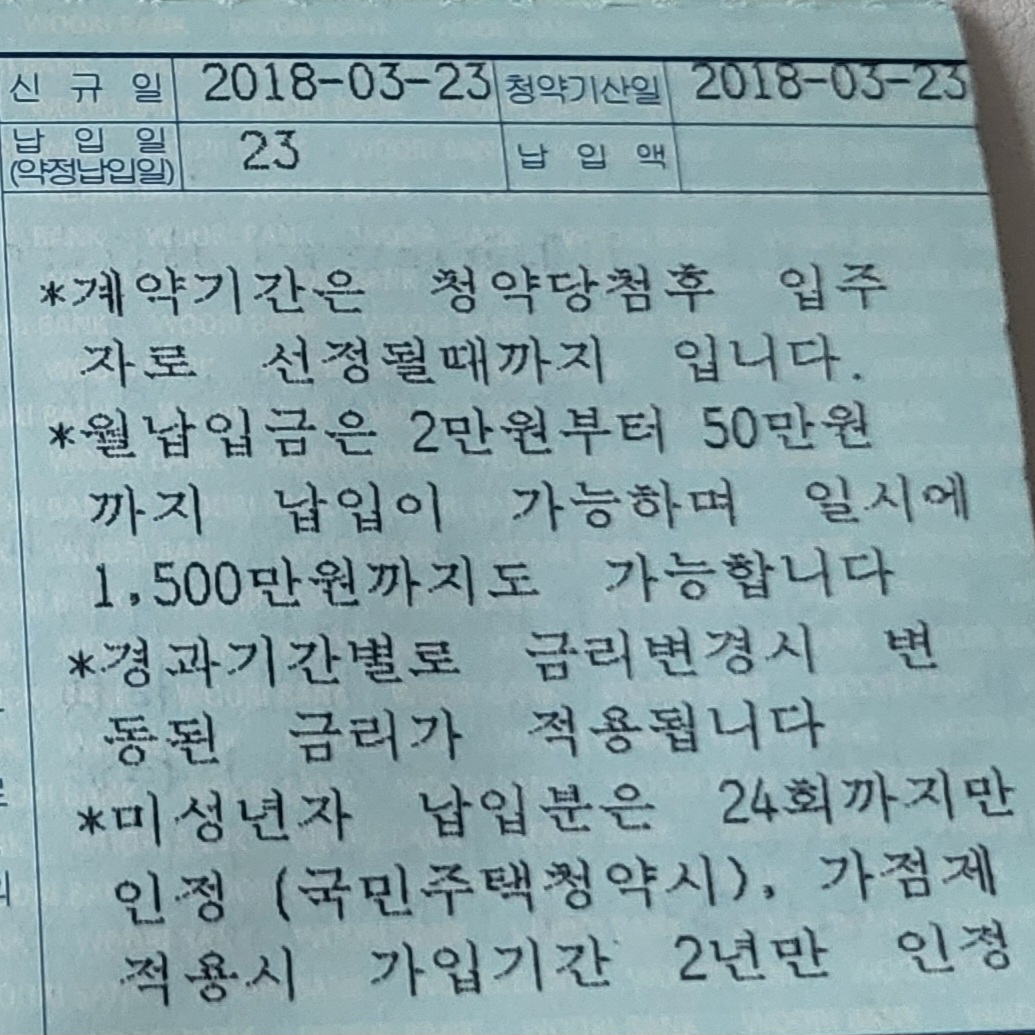 신 규 일 2018-03-23 청약기산일 2018-03-23
납 입 일 23 납 입 액
(약정납입일)
*계약기간은 청약당첨후 입주
자로 선정될때까지 입니다.
*월납입금은 2만원부터 50만원
까지 납입이 가능하며 일시에
1,500만원까지도 가능합니다
*경과기간별로 금리변경시 변
동된 금리가 적용됩니다
*미성년자 납입분은 24회까지만
인정 (국민주택청약시), 가점제
적용시 가입기간 2년만 인정